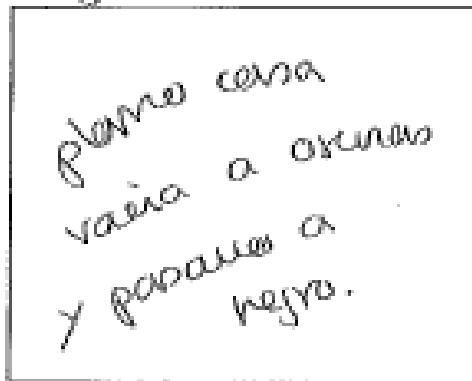 plano casa
vacía a oscuras
y pasamos a
negro.